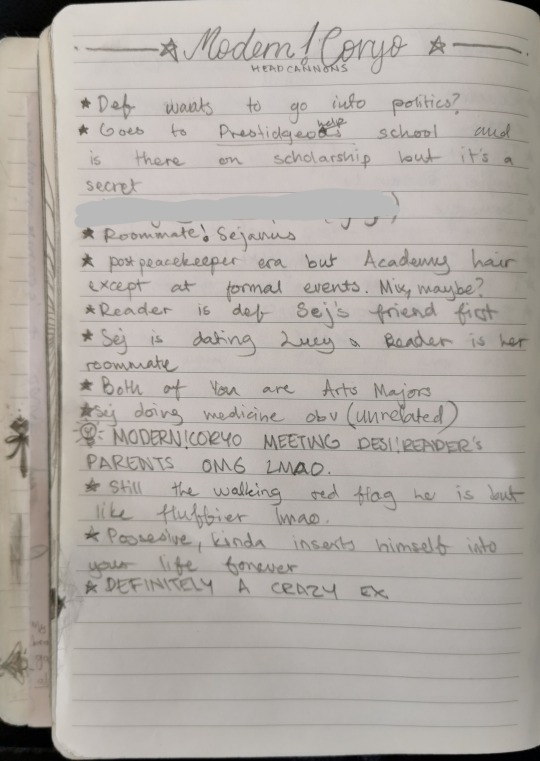 Modern! Coryo
HEADCANNONS
★ Def wants to go into politics?
help
★ Goes to Prestidgeous school and
is there on scholarship but it's a
secret
)
★ Roommate! Sejanus
★ post peacekeeper era but Academy hair
except at formal events. Mix, maybe?
★ Reader is def Sej's friend first
★ Sej is dating Lucy & Reader is her
roommate
★ Both of You are Arts Majors
★ Sej doing medicine obv (unrelated)
: MODERN!CORYO MEETING DESI!READER'S
PARENTS OMG LMAO.
★ Still the walking red flag he is but
like fluffier lmao.
★ Possesive, kinda inserts himself into
your life forever
★ DEFINITELY A CRAZY EX